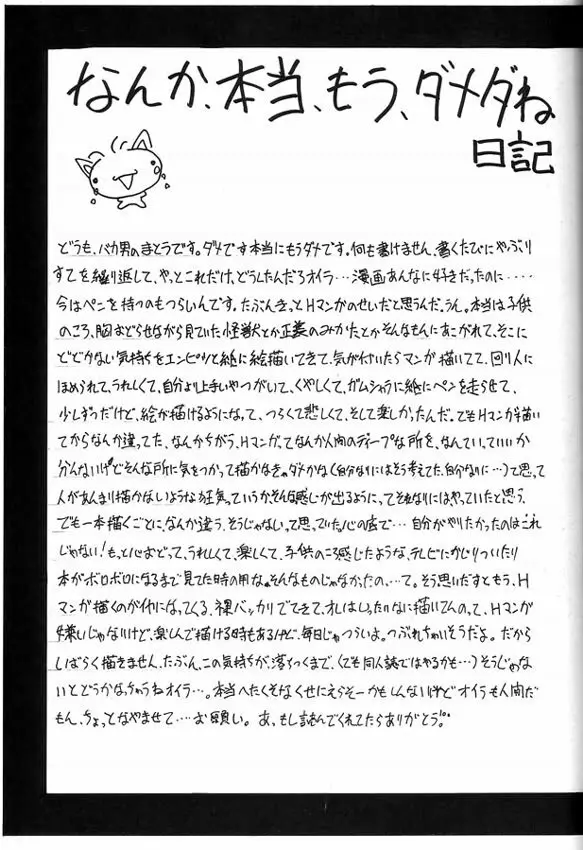 なんか、本当、もう、ダメダね
日記
どうも、バカ男のまとうです。ダメです本当にもうダメです。何も書けません、書くたびにやぶり
すてを繰り返して、やっとこれだけ、どうしたんだろオイラ…漫画あんなに好きだったのに‥‥
今はペンを持つのもつらいんです。たぶんきっとHマンガのせいだと思うんだ。うん。本当は子供
のころ、胸おどらせながら見ていた怪獣とか正義のみかたとかそんなもんにあこがれて、そこに
とどかない気持ちをエンピツと紙に絵描いてきて、気が付いたらマンガ描いてて、回り人に
ほめられて、うれしくて、自分より上手いやつがいて、くやしくて、ガムシャラに紙にペンを走らせて、
少しずつだけど、絵が描けるようになって、つらくて悲しくて、そして楽しかったんだ。でもHマンガ描い
てからなんか違ってた、なんかちがう、Hマンガってなんか人間のディープな所を、なんていっていいか
分んないけどそんな所に気をつかって描かなきゃダメかな(自分なりにはそう考えてた、自分なりに…)て思って
人があんまり描かないような狂気っていうか、そんな感じが出るようにってそれなりにはやっていたと思う。
でも一本描くごとに、なんか違う、そうじゃないって思っていた。心の底で…自分がやりたかったのはこれ
じゃない!もっと心おどって、うれしくて、楽しくて、子供のころ感じたような、テレビにかじりついたり
本がボロボロになるまで見てた時の用な。そんなものじゃなかったの…て。そう思いだすともう、H
マンガ描くのがイヤになってくる、裸バッカリでてきて、オレはいったいなに描いてんのって、Hマンガ
嫌いじゃないけど、楽しんで描ける時もあるけど、毎日じゃつらいよ。つぶれちゃいそうだよ。だから
しばらく描きません、たぶん、この気持ちが、落ちつくまで、(でも同人誌ではやるかも…)そうじゃな
いとどうかなっちゃうねオイラ…。本当へたくそなくせにえらそーかもしんないけどオイラも人間だ
もん、ちょっとなやませて…お願い。あ、もし読んでくれてたらありがとう!。